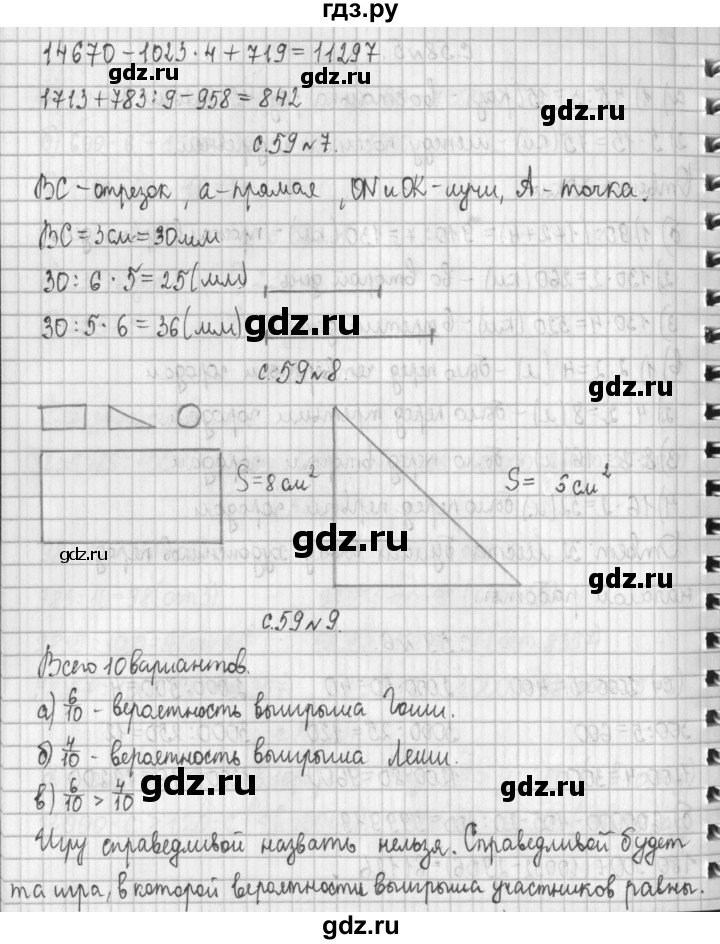 гдз.ру
14670 - 1023 · 4 + 719 = 11297
gdz.ru
gdz.ru
1713 + 783 : 9 - 958 = 842
с.59 №7.
ВС - отрезок, а - прямая, ОN и ОК - лучи, А - точка.
ВС = 3 см = 30 мм
30 : 6 · 5 = 25 (мм)
30 : 5 · 6 = 36 (мм)
gdz.ru
с.59 №8.
gdz.ru
S = 8 см²
S = 6 см²
gdz.ru
gdz.ru
gdz.ru
с.59 №9.
Всего 10 вариантов.
а) 6/10 - вероятность выигрыша Гоши.
б) 4/10 - вероятность выигрыша Леши.
gdz.ru
gdz.ru
в) 6/10 > 4/10
Игру справедливой назвать нельзя. Справедливой будет
та игра, в которой вероятности выигрыша участников равны.
gdz.ru